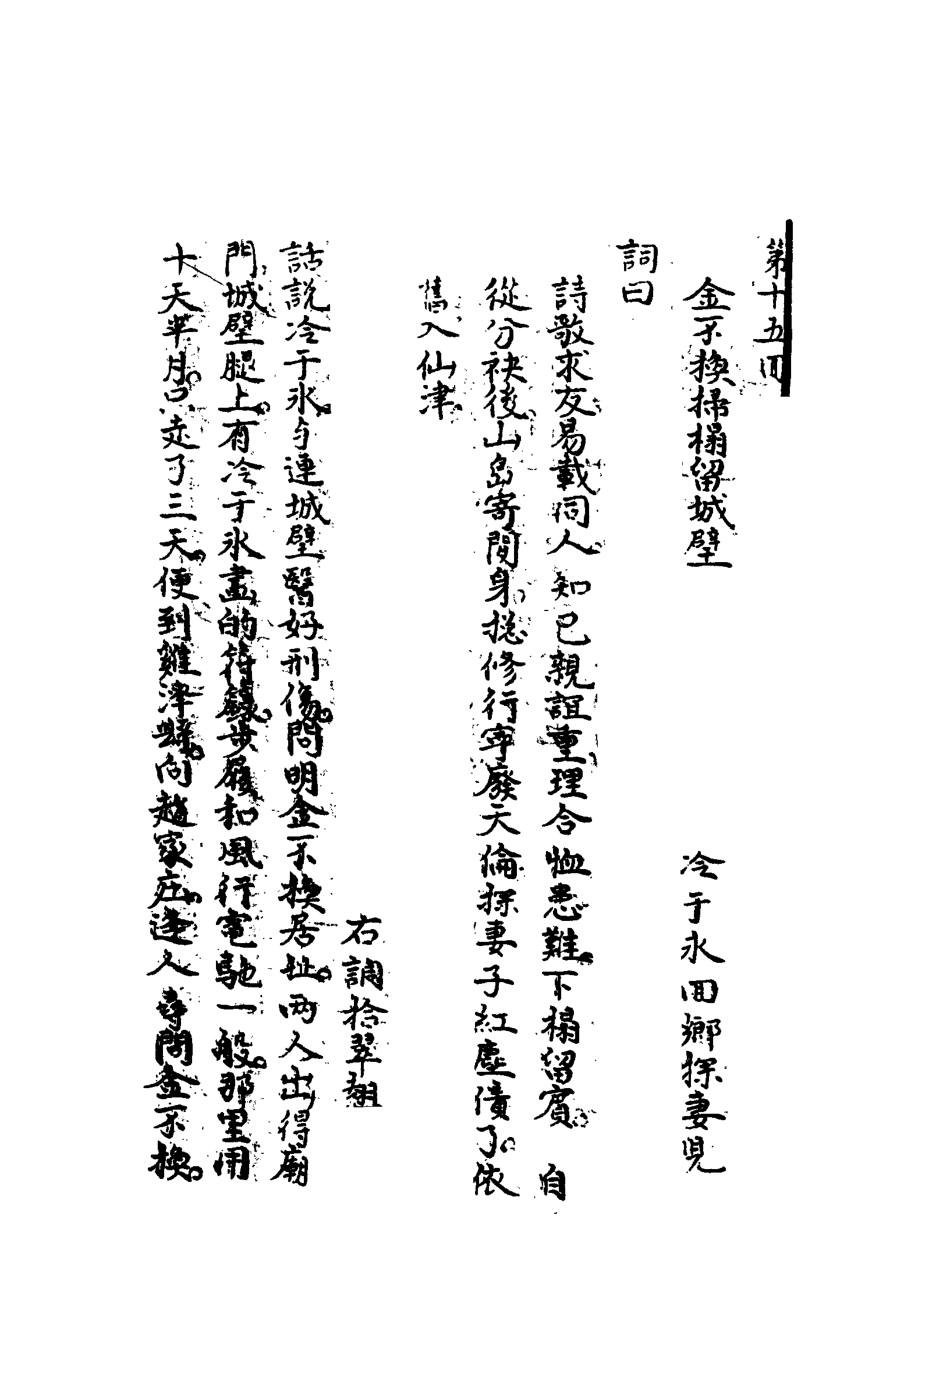 第十五回
金不換掃榻留城壁　冷于氷回鄉探妻兒
詞曰
詩歌求友易載同人知己親誼重理合恤患難下榻留賓　自
從分袂後山島寄閒身揔修行寧廢天倫探妻子紅塵債了依
舊入仙津
右調拾翠翹
話說冷于氷与連城壁醫好刑傷問明金不換居址两人出得廟
門城壁腿上有冷于氷畫的符籙步履和風行電馳一般那里用
十天半月只走了三天便到雞澤縣向趙家庄逢人尋問金不換